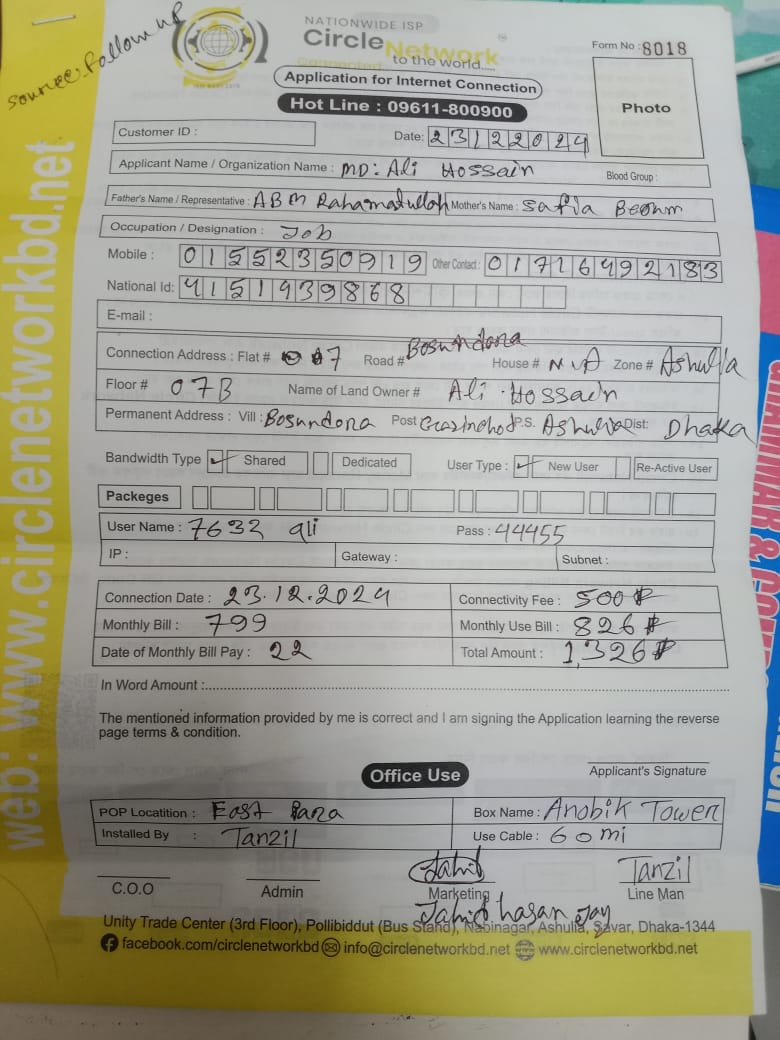 source: follow up
NATIONWIDE ISP
Circle Network
Connected to the world.....
Form No : 8018
Application for Internet Connection
Hot Line : 09611-800900
Photo
Customer ID :
Date: 23122024
Applicant Name / Organization Name : MD: Ali Hossain Blood Group :
Father's Name / Representative : ABM Rahamatullah Mother's Name : Safia Begum
Occupation / Designation : Job
Mobile : 01552350919 Other Contact : 01716492183
National Id: 4151939868
E-mail :
Connection Address : Flat # 7 Road # Bosundora House # N/A Zone # Ashulia
Floor # 07B Name of Land Owner # Ali Hossain
Permanent Address : Vill : Bosundora Post P.S. Ashulia Dist: Dhaka
Bandwidth Type ✓ Shared Dedicated User Type : ✓ New User Re-Active User
Packeges
User Name : 7632 ali Pass : 44455
IP : Gateway : Subnet :
Connection Date : 23.12.2024 Connectivity Fee : 500৳
Monthly Bill : 799 Monthly Use Bill : 826৳
Date of Monthly Bill Pay : 22 Total Amount : 1,326৳
In Word Amount :
The mentioned information provided by me is correct and I am signing the Application learning the reverse
page terms & condition.
Applicant's Signature
Office Use
POP Locatition : East Para Box Name : Anobik Tower
Installed By : Tanzil Use Cable : 60 mi
Jahid Tanzil
C.O.O Admin Marketing Line Man
Jahid hasan Joy
Unity Trade Center (3rd Floor), Pollibiddut (Bus Stand), Nabinagar, Ashulia, Savar, Dhaka-1344
facebook.com/circlenetworkbd info@circlenetworkbd.net www.circlenetworkbd.net
web: www.circlenetworkbd.net